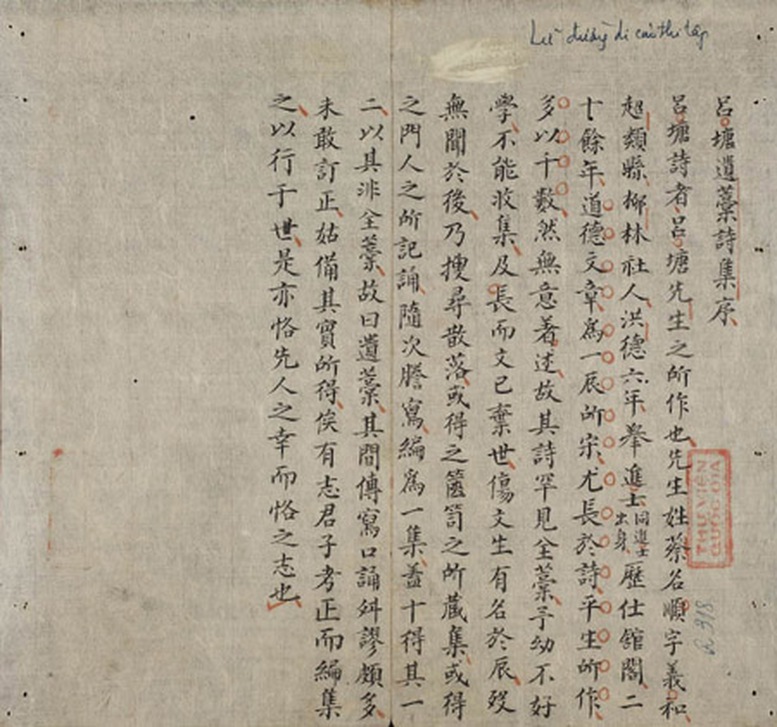 Lữ đường di cảo thi tập
呂塘遺藁詩集序
呂塘詩者呂塘先生之所作也先生姓蔡名順字義和
超類縣柳林社人洪德六年舉進士同進士出身歷仕館閣二
十餘年道德文章爲一辰所宗尤長於詩平生所作
多以千數然無意著述故其詩罕見全藁予幼不好
學不能收集及長而文已棄世傷文生有名於辰歿
無聞於後乃搜尋散落或得之篋笥之所藏集或得
之門人之所記誦隨次謄寫編爲一集蓋十得其一
二以其非全藁故曰遺藁其間傳寫口誦舛謬頗多
未敢訂正姑備其實所得俟有志君子考正而編集
之以行于世是亦恪先人之幸而恪之志也
THƯ VIỆN
QUỐC GIA
R 318